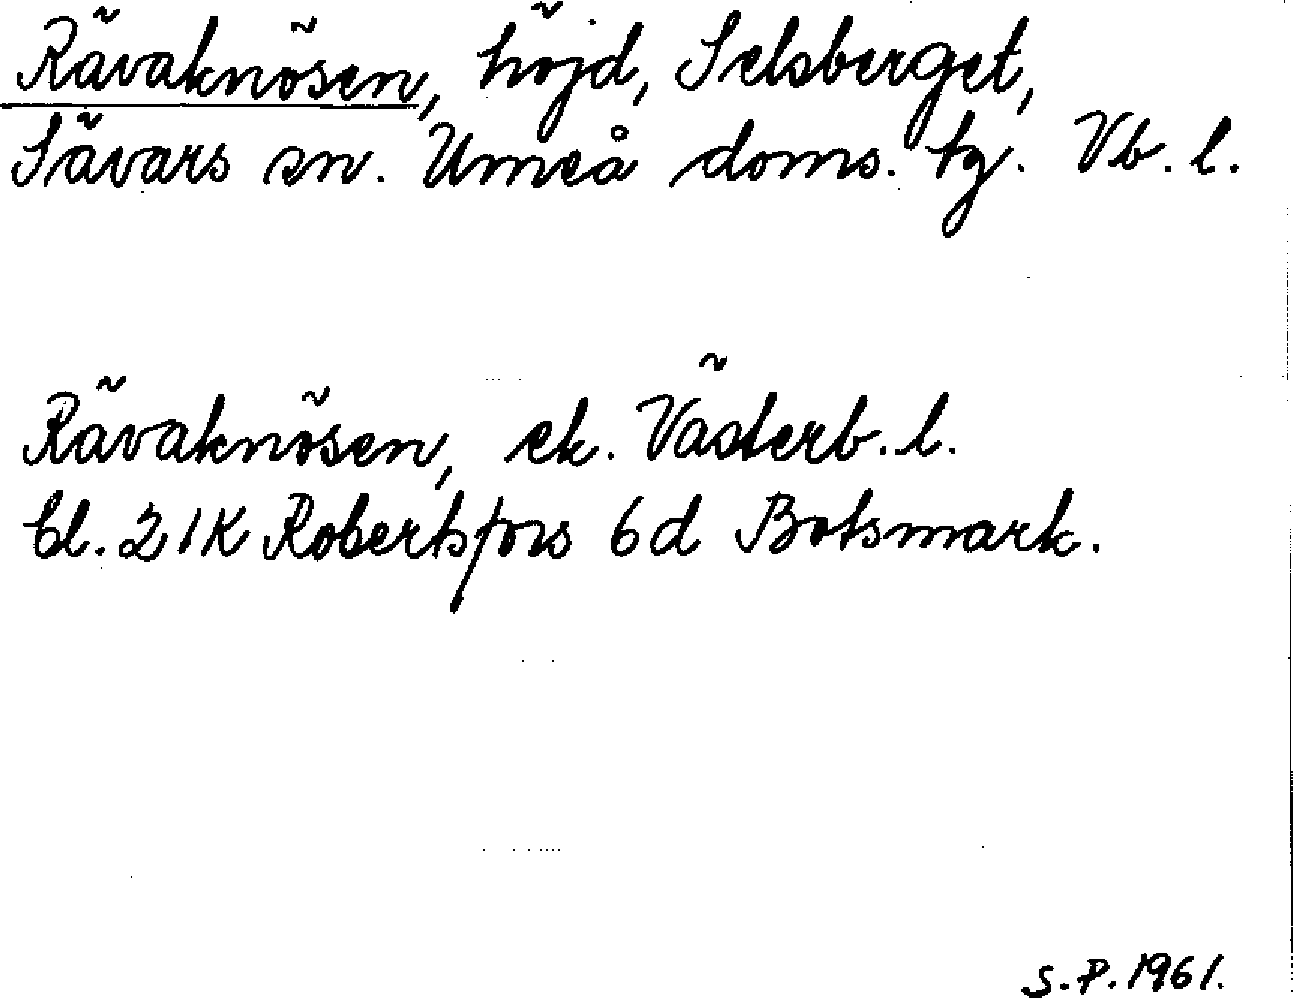 Rävaknösen, höjd, Selsberget,
Sävars sn. Umeå doms. tg. Vb. l.
Rävaknösen, ek. Västerb. l.
bl. 21K Robertsfors 6d Botsmark.
S.P. 1961.